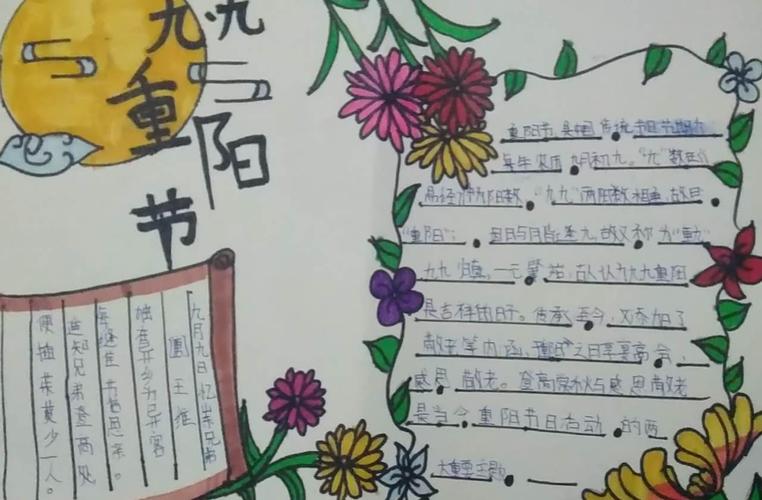 九九
重阳
节
九月九日忆山东兄弟
王维
独在异乡为异客
每逢佳节倍思亲。
遥知兄弟登高处
便插茱萸少一人。
重阳节,是中国传统节日节期
每年农历九月初九。“九”数在《
易经》中为阳数,“九九”两阳数相重,故曰
“重阳”;因日与月皆逢九,故又称为“重九”
九九归真,一元肇始,古人认为九九重阳
是吉祥的日子。传承至今,又添加了
敬老等内涵,重阳之日享宴高会,
感恩敬老。登高赏秋与感恩敬老
是当今重阳节日活动的两
大重要主题。